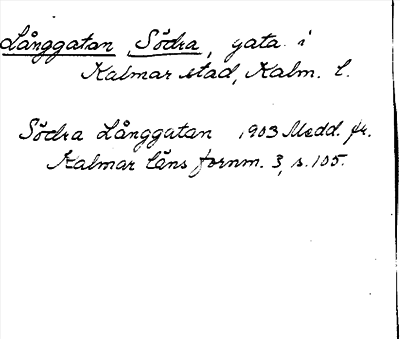 Långgatan Södra, gata i
Kalmar stad, Kalm. l.
Södra Långgatan 1903 Medd. fr.
Kalmar läns fornm. 3, s. 105.